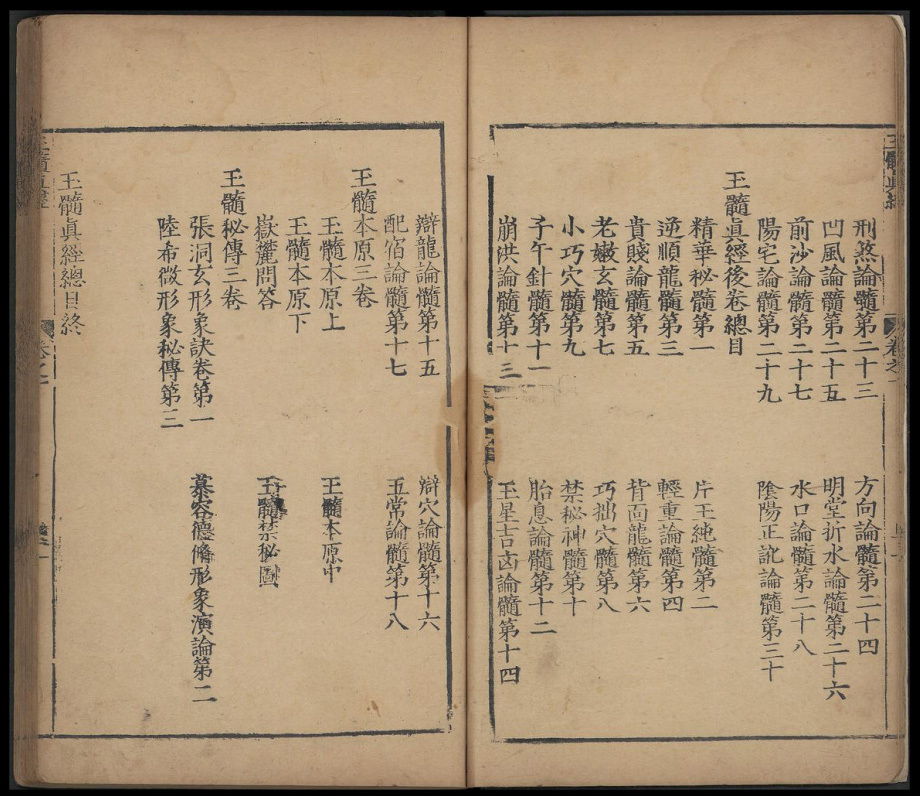 刑煞論髓第二十三 方向論髓第二十四
凹風論髓第二十五 明堂折水論髓第二十六
前沙論髓第二十七 水口論髓第二十八
陽宅論髓第二十九 陰陽正訛論髓第三十
玉髓眞經後卷總目
精華秘髓第一 片玉純髓第二
逆順龍髓第三 輕重論髓第四
貴賤論髓第五 背面龍髓第六
老嫩玄髓第七 巧拙穴髓第八
小巧穴髓第九 禁秘神髓第十
子午針髓第十一 胎息論髓第十二
崩洪論髓第十三 玉星吉凶論髓第十四
辯龍論髓第十五 辯穴論髓第十六
配宿論髓第十七 五常論髓第十八
玉髓本原三卷
玉髓本原上 玉髓本原中
玉髓本原下
嶽麓問答 玉髓禁秘圖
玉髓秘傳三卷
張洞玄形象訣卷第一 慕容德脩形象演論第二
陸希微形象秘傳第三
玉髓眞經總目終